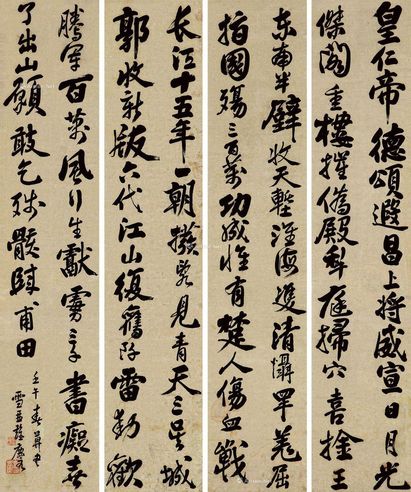 皇仁帝德頌遐昌上將威宣日月光
傑閣重樓摧僞殿犂庭掃穴喜擒王
东南半壁收天塹淮海雙清懾罕羌屈
指國殤三百萬功成惟有楚人傷血戰
长江十五年一朝撥霧見青天三吴城
郭收新版六代江山復舊阡雷動歡
騰軍百萬風行生獻虜三千書癡喜
了出山願敢乞殘骸歸甫田
壬午春
雪